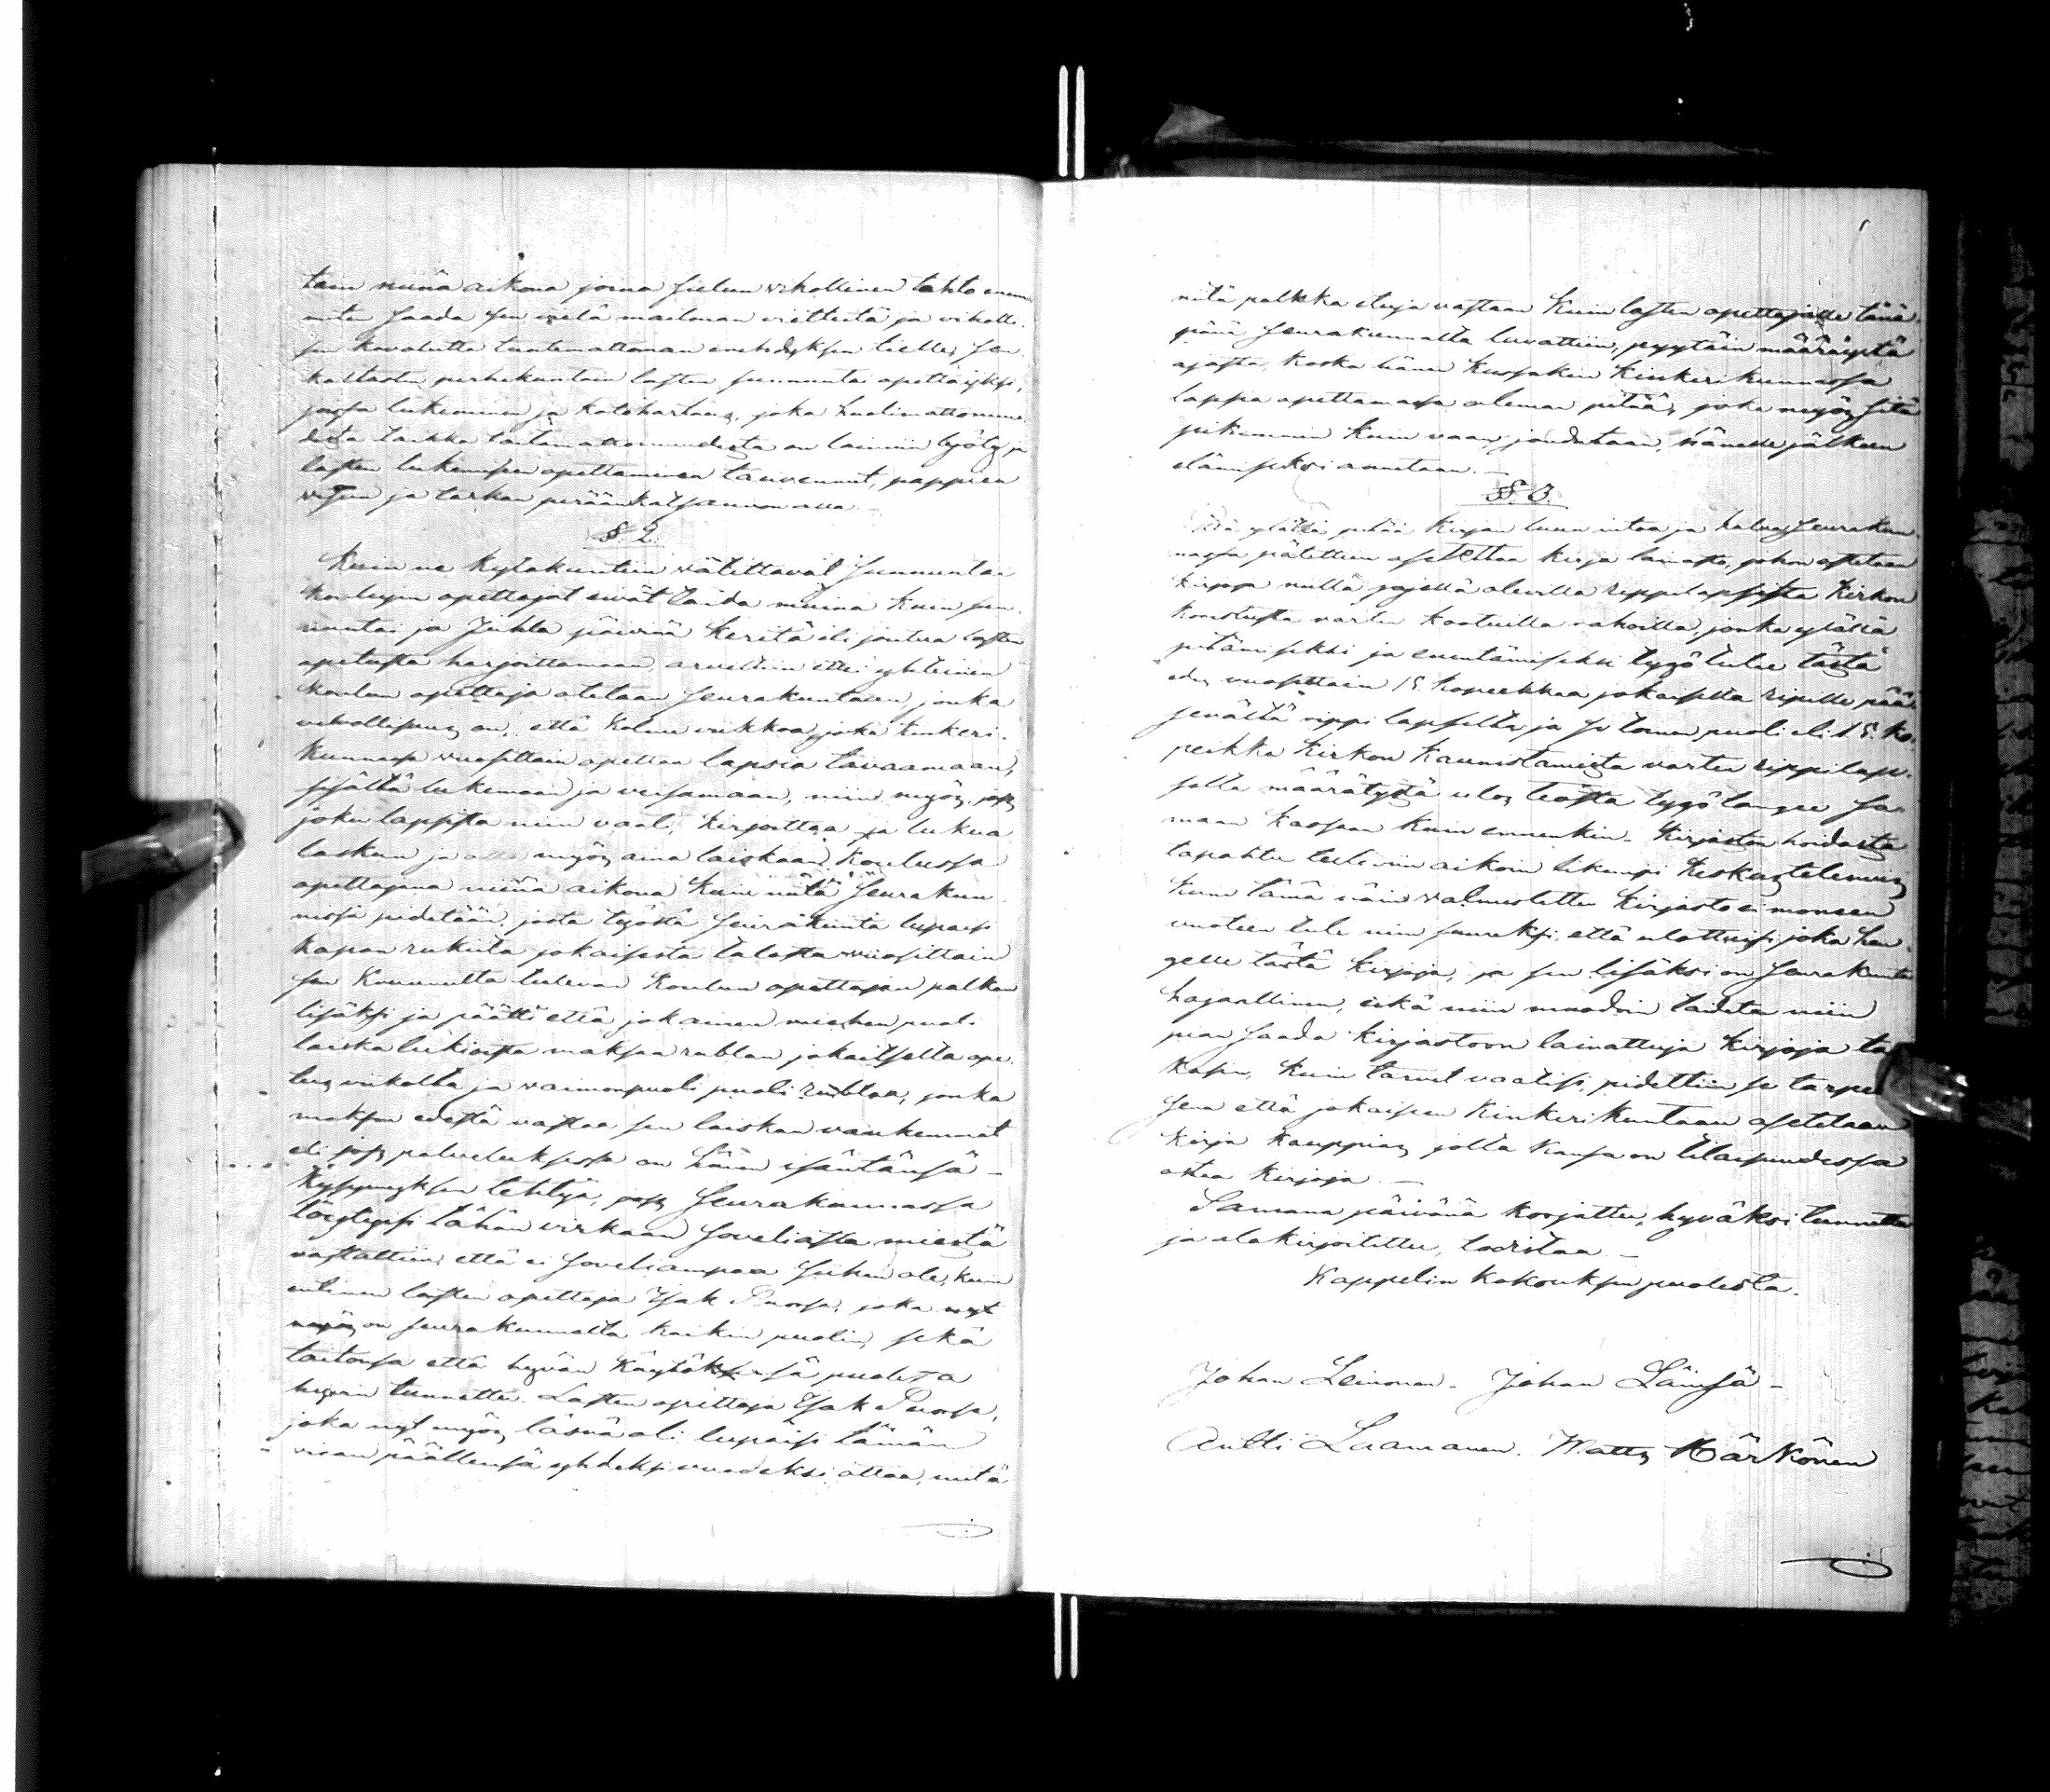 tain niinä aikona joina sielun vihollinen tahto enem
miten saada sen vielä mailman viettestä ja viholli-
sen kavalutta tuntemattoman enehdyksen tielle, sen
kaltasten perhekuntain lasten sunnuntai opettajiksi,
jossa lukeminen ja kotohartaus, joka huolimattomuu-
desta taikka taitamattomuudesta on laimin lyöty ja
lasten lukemisen opettaminen tauvonnut, pappien
visun ja tarkan peräänkatsannon alla. –
§. 2.
Kuin ne kyläkuntiin välittävät sunnuntai
koulujen opettajat eivät taida muina kuin sun-
nuntai ja Juhla päivinä keritä eli joutua lasten
opetusta harjoittamaan, arveltiin ettei yhteinen
koulun opettaja otetaan seurakuntaan, jonka
velvollisuus on, että kolme viikkoa joka kinkeri-
kunnassa vuosittain opettaa lapsia tavaamaan,
sisältä lukemaan ja veisamaan, niin myös, jos
joku lapsista niin vaatii, kirjoittaa ja lukua
laskun ja myös aina laiskaan koulussa
opettajana niinä aikona kuin niitä seurakun-
nassa pidetään, josta työstä seurakunta lupaisi
kapan rukiita jokaisesta talosta vuosittain
sen kruunulta tulevan koulun opettajan palkan
lisäksi ja päätti että jokainen miehen puoli
laiska lukioista maksaa rublan jokaitselta ope-
tus viikolta ja vaimonpuoli puoli rublaa, jonka
maksun edestä vastaa sen laiskan vanhemmat
eli jos palveluksessa on hänen isäntänsä –
Kysymyksen tehtyä, jos seurakunnassa
löytyysi tähän virkaan soveliasta miestä
vastattiin, että ei soveliampaa siihen ole, kuin
entinen lasten opettaja Isak Puossa, joka nyt
myös on seurakunnalta kaikin puolin, sekä
taitonsa että hyvän käytöksensä puolesta
hyvin tunnettu. Lasten opettaja Isak Puossa,
joka nyt myös läsnä oli lupaisi tämän
viran päällensä yhdeksi vuodeksi ottaa, niitä
nitä palkka etuja vastaan kuin lasten opettajalle tänä
pänä seurakunnalta luvattiin, pyytäin määräystä
ajasta, koska hänen kussakin kinkerikunnassa
lapsia opettamassa oleman pitää, joka myös sitä
pikemmin kuin vaan joudutaan, hänelle jälkeen
elämiseksi annetaan. –
§. 3.
ylällä pitää kirjan luun intoa ja halua seurakun-
nassa päätettiin asetettaa kirja lainasto, johon ostetaan
kirjoja niillä jäjellä olevilla rippilapsista kirkon
koristusta varten kootuilla rahoilla, jonka ylällä
pitämiseksi ja enentämiseksi työ tulee tästä
edes vuosittain 15 kopeekkaa jokaiselta ripille pää-
sevältä rippi lapselta, ja se toinen puoli eli 15 ko-
peikka kirkon kaunistamista varten rippilap-
selta määrätystä ulos teosta työ langee sa-
maan kassaan kuin ennenkin. Kirjaston hoidosta
tapahtu tulevin aikoin likempi keskustelemus
kuin tämä näin valmistettu kirjasto ei moneen
vuoteen tule niin suureksi, että ulottuisi joka hen-
gelle tästä kirjoja, ja sen lisäksi on seurakunta
hajaallinen, eikä niin muodoin taideta niin
pian saada kirjastoon lainattuja kirjoja ta-
kasin, kuin tarvet vaatisi, pidettiin se tarpee
sena että jokaiseen kinkerikuntaan asetetaan
kirja kauppias, jolta kansa on tilaisuudessa
ostaa kirjoja –
Samana päivänä korjattu, hyväksi tunnettu
ja alakirjoitettu, todistaa –
Kappelin kokouksen puolesta.
Johan Leinonen. Johan Länsä –
Antti Laamanen. Matts Härkönen